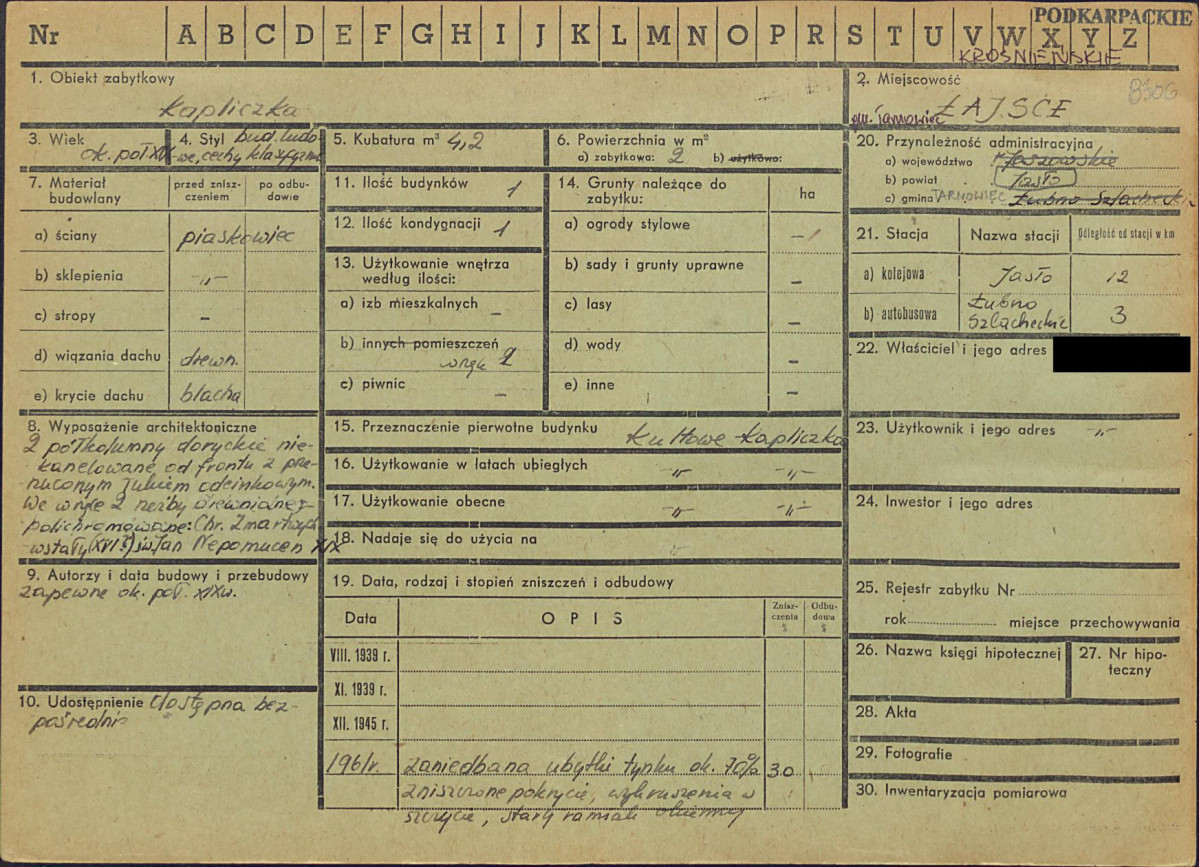 PODKARPACKIE
Nr A B C D E F G H I J K L M N O P R S T U V W X Y Z
KROŚNIEŃSKIE
1. Obiekt zabytkowy
Kapliczka
2. Miejscowość
8306
gm. Tarnowiec ŁAJŚCE
3. Wiek
ok. poł XIX
4. Styl bud. ludo-
we, cechy klasycyzmu
5. Kubatura m³ 4,2
6. Powierzchnia w m²
a) zabytkowa: 2 b) użytkowa:
7. Materiał budowlany
przed zniszczeniem
po odbudowie
a) ściany piaskowiec
b) sklepienia -„-
c) stropy -
d) wiązania dachu drewn.
e) krycie dachu blacha
11. Ilość budynków 1
12. Ilość kondygnacji 1
13. Użytkowanie wnętrza
według ilości:
a) izb mieszkalnych -
b) innych pomieszczeń
wnęk 1
c) piwnic -
14. Grunty należące do
zabytku:
ha
a) ogrody stylowe -
b) sady i grunty uprawne -
c) lasy -
d) wody -
e) inne -
20. Przynależność administracyjna
a) województwo Rzeszowskie
b) powiat Jasło
c) gmina TARNOWIEC Łubno Szlacheckie
21. Stacja
Nazwa stacji
Odległość od stacji w km
a) kolejowa Jasło 12
b) autobusowa Łubno
Szlacheckie 3
22. Właściciel i jego adres
8. Wyposażenie architektoniczne
2 półkolumny doryckie nie-
kanelowane od frontu z prze-
rzuconym łukiem odcinkowym.
We wnęce 2 rzeźby drewniane,
polichromowane: Chr. Zmartwych-
wstały (XVI?) św. Jan Nepomucen XIX
15. Przeznaczenie pierwotne budynku Kultowe - kapliczka
16. Użytkowanie w latach ubiegłych -„- -„-
17. Użytkowanie obecne -„- -„-
18. Nadaje się do użycia na
23. Użytkownik i jego adres -„-
24. Inwestor i jego adres
9. Autorzy i data budowy i przebudowy
zapewne ok. poł. XIXw.
19. Data, rodzaj i stopień zniszczeń i odbudowy
Data
OPIS
Zniszczenia %
Odbudowa %
VIII. 1939 r.
XI. 1939 r.
XII. 1945 r.
1961r. zaniedbana ubytki tynku ok. 70% 30
zniszczone pokrycie, wykruszenia w
szczycie, stary ramiak okienny
10. Udostępnienie dostępna bez-
pośrednio
25. Rejestr zabytku Nr
rok miejsce przechowywania
26. Nazwa księgi hipotecznej
27. Nr hipo-
teczny
28. Akta
29. Fotografie
30. Inwentaryzacja pomiarowa